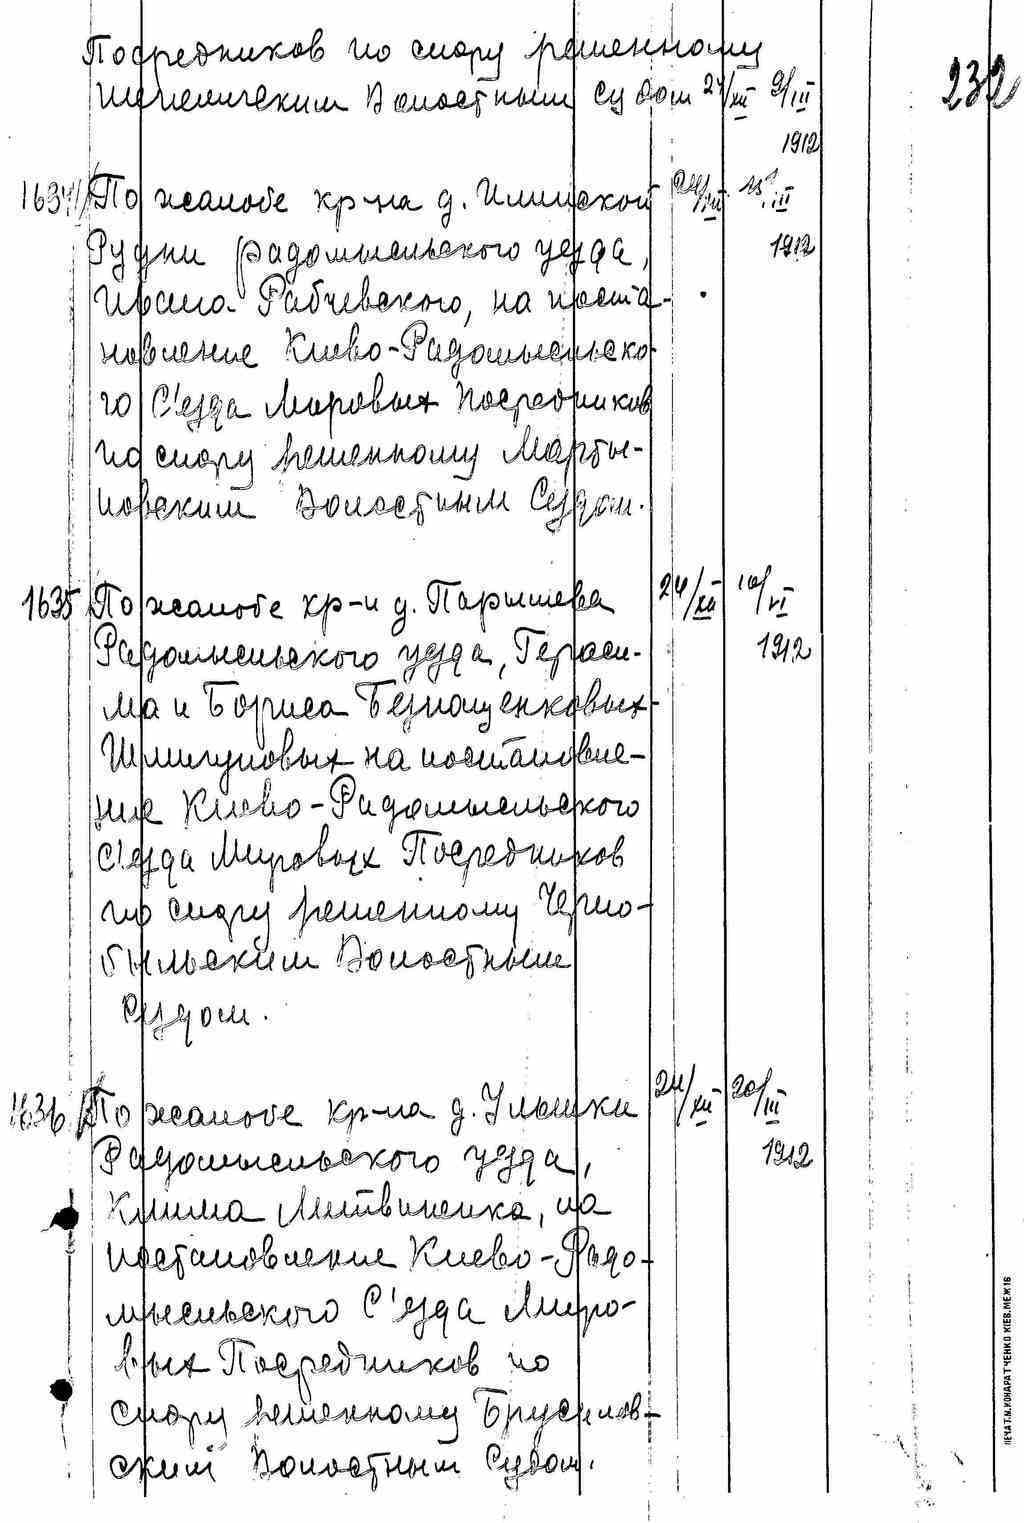 Посредников по спору решенному
Шепеличским Волостным Судом 24/XII 9/III
232
1912
1634 По жалобе кр-на д. Илинской 24/XII 15/III
Рудни Радомысльского уезда, 1912
Ивана Рабчевского, на поста-
новление Киево-Радомысльско-
го С'езда Мировых Посредников
по спору решенному Марты-
новским Волостным Судом.
1635 По жалобе кр-н д. Парышева 24/XII 10/VI
Радомысльского уезда, Гераси- 1912
ма и Бориса Безнощенковых-
Шмигуновых на постановле-
ние Киево-Радомысльского
С'езда Мировых Посредников
по спору решенному Черно-
быльским Волостным
Судом.
1636 По жалобе кр-на д. Улашки 24/XII 20/III
Радомысльского уезда, 1912
Клима Литвиненка, на
постановление Киево-Радо-
мысльского С'езда Миро-
вых Посредников по
спору решенному Брусилов-
ским Волостным Судом.
ПЕЧАТ. М. КОНДРАТЧЕНКО КІЕВ. МЕЖ 16